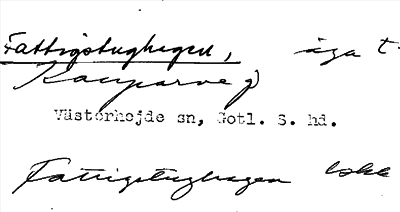 Fattigstughagen, äga t.
Kauparve g
Västerhejde sn, Gotl. S. hd.
Fattigstughagen